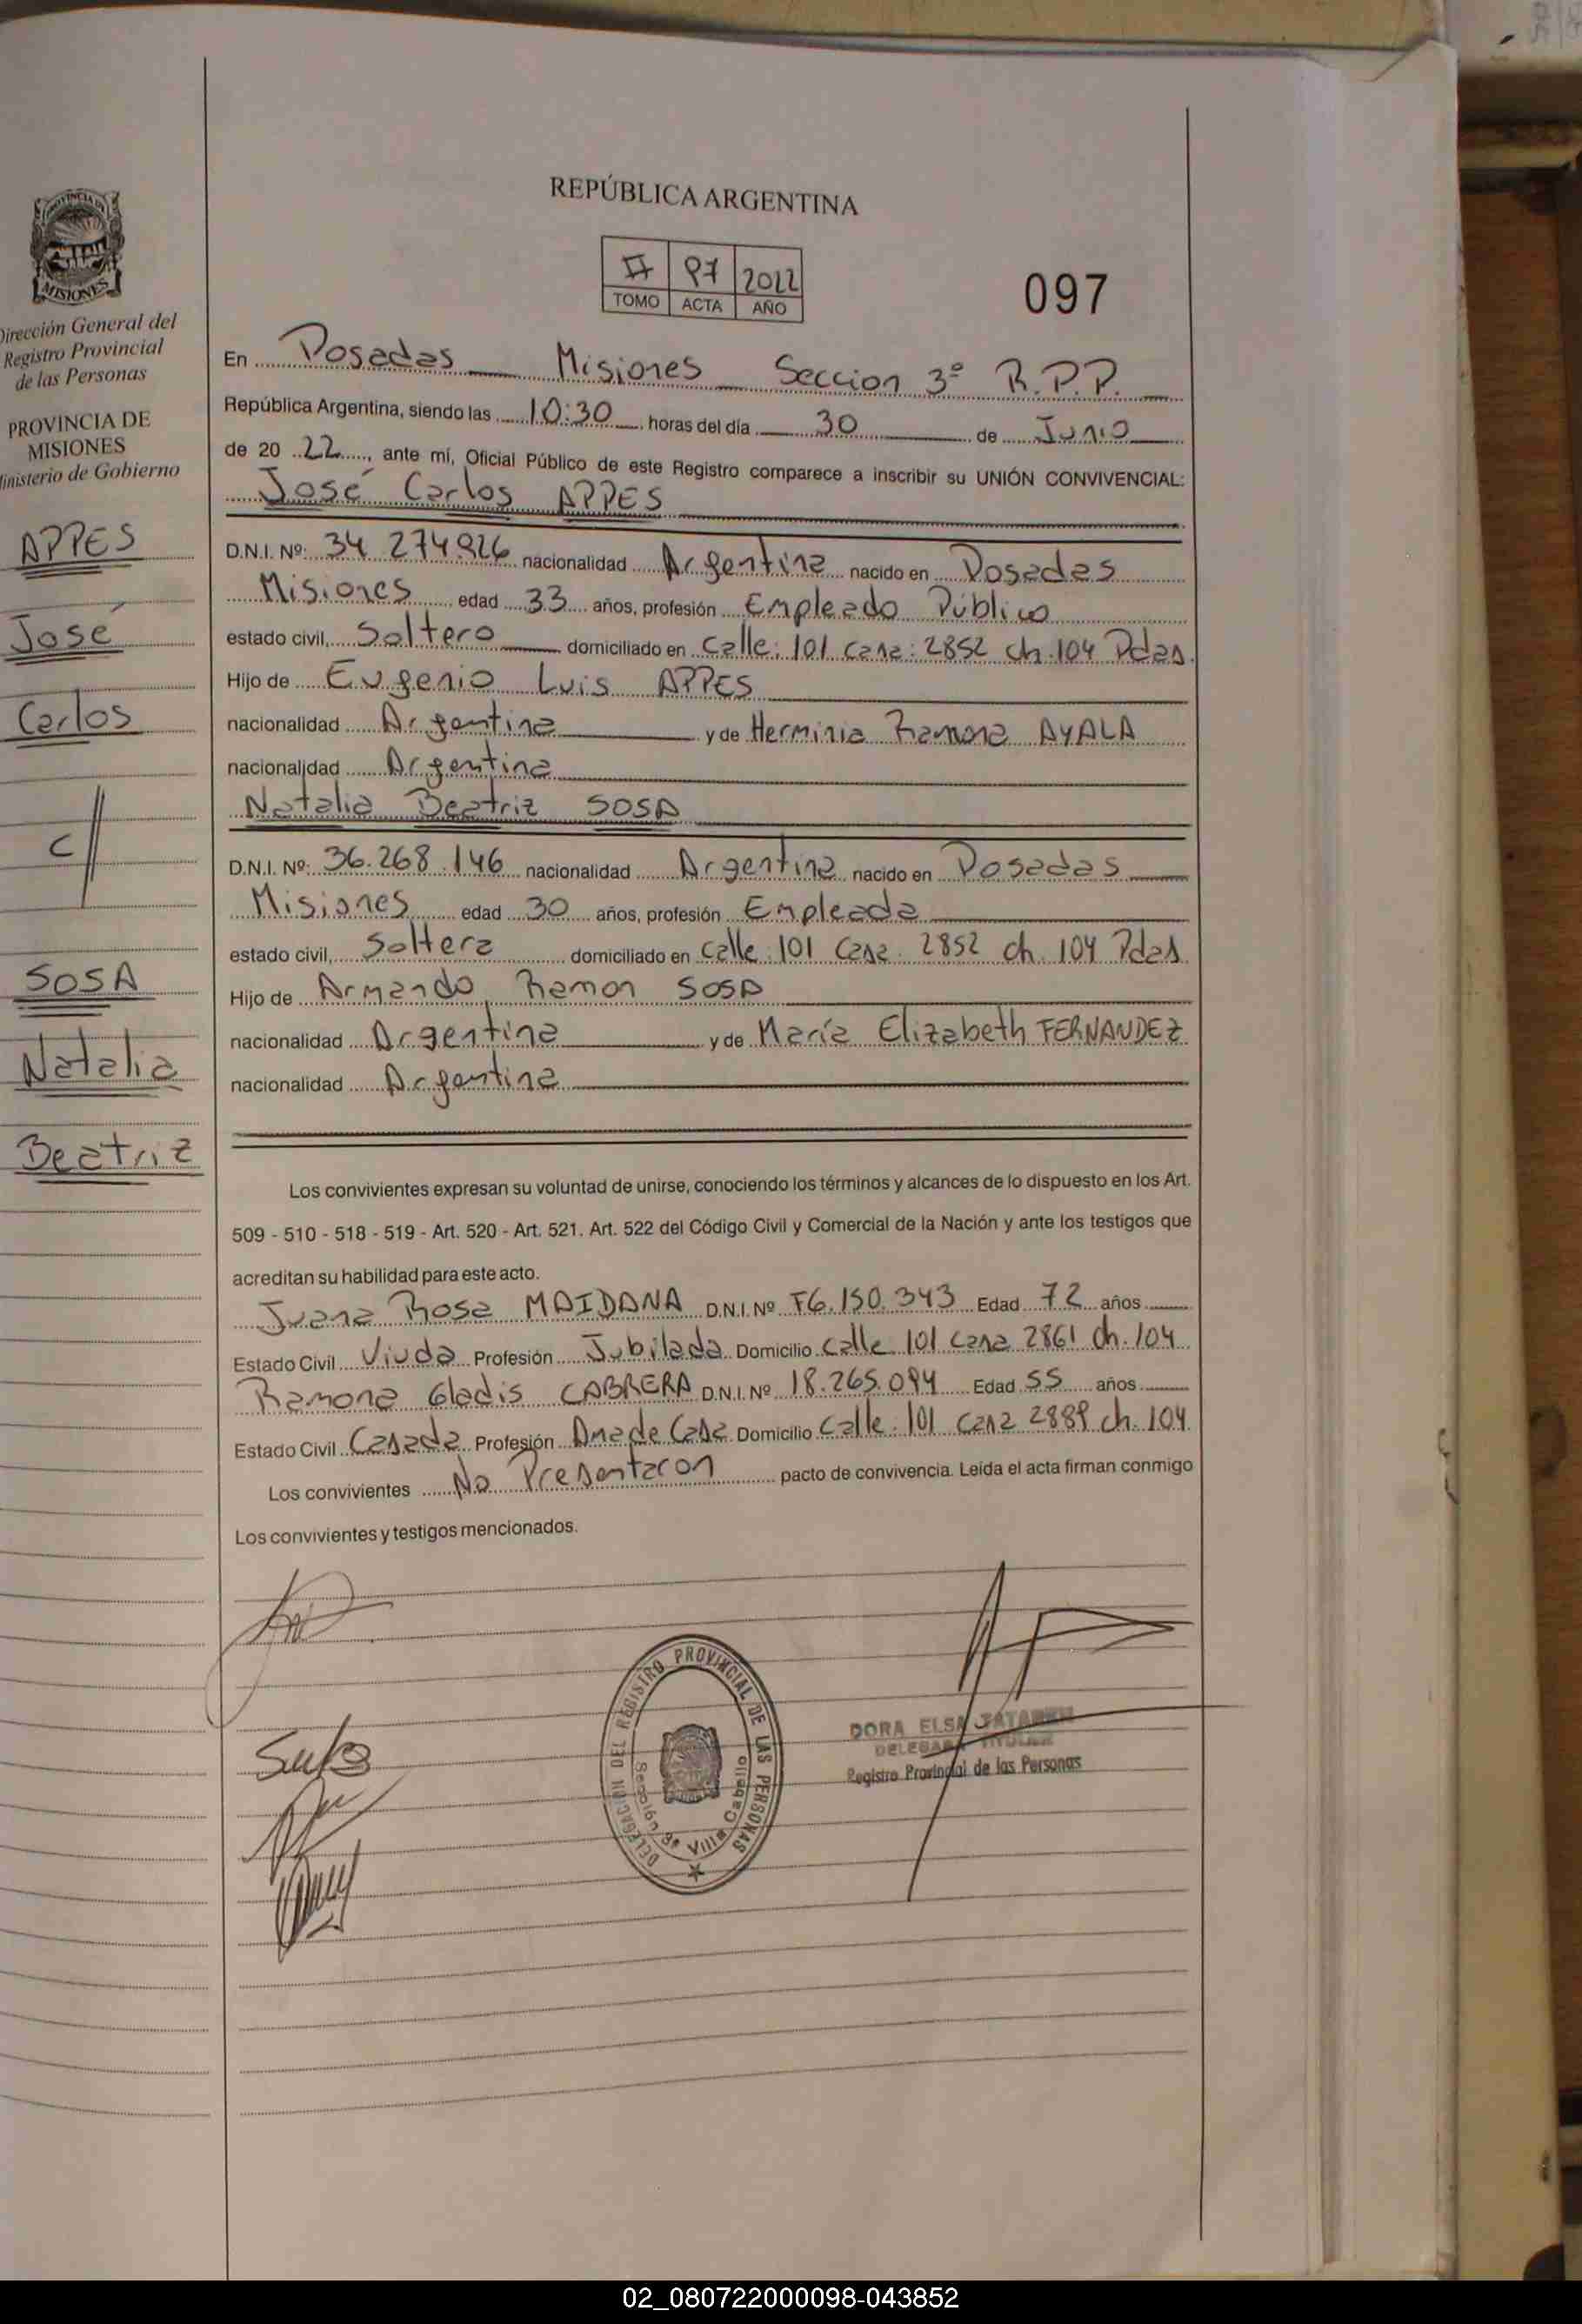 REPÚBLICA ARGENTINA
II 97 2022
TOMO ACTA AÑO
097
PROVINCIA DE
MISIONES
Dirección General del
Registro Provincial
de las Personas
PROVINCIA DE
MISIONES
Ministerio de Gobierno
APPES
José
Carlos
c//
SOSA
Natalia
Beatriz
En Posadas Misiones Seccion 3º R.P.P.
República Argentina, siendo las 10:30 horas del día 30 de Junio
de 20 22, ante mí, Oficial Público de este Registro comparece a inscribir su UNIÓN CONVIVENCIAL:
José Carlos APPES
D.N.I. Nº: 34 274.926 nacionalidad Argentina nacido en Posadas
Misiones edad 33 años, profesión Empleado Público
estado civil, Soltero domiciliado en Calle: 101 casa: 2852 ch. 104 Pdas.
Hijo de Eugenio Luis APPES
nacionalidad Argentina y de Herminia Ramona AYALA
nacionalidad Argentina
Natalia Beatriz SOSA
D.N.I. Nº: 36.268.146 nacionalidad Argentina nacido en Posadas
Misiones edad 30 años, profesión Empleada
estado civil, Soltera domiciliado en calle: 101 Casa: 2852 ch. 104 Pdas
Hijo de Armando Ramon SOSA
nacionalidad Argentina y de María Elizabeth FERNANDEZ
nacionalidad Argentina
Los convivientes expresan su voluntad de unirse, conociendo los términos y alcances de lo dispuesto en los Art.
509 - 510 - 518 - 519 - Art. 520 - Art. 521. Art. 522 del Código Civil y Comercial de la Nación y ante los testigos que
acreditan su habilidad para este acto.
Juana Rosa MAIDANA D.N.I. Nº F6.150.343 Edad 72 años
Estado Civil Viuda Profesión Jubilada Domicilio Calle 101 casa 2861 ch. 104
Ramona Gladis CABRERA D.N.I. Nº 18.265.094 Edad 55 años
Estado Civil Casada Profesión Ama de Casa Domicilio Calle: 101 casa 2889 ch. 104
Los convivientes No Presentaron pacto de convivencia. Leída el acta firman conmigo
Los convivientes y testigos mencionados.
DELEGACIÓN DEL REGISTRO PROVINCIAL DE LAS PERSONAS
Sección 3ª Villa Cabello
DORA ELSA
DELEGADA TITULAR
Registro Provincial de las Personas
02_080722000098-043852